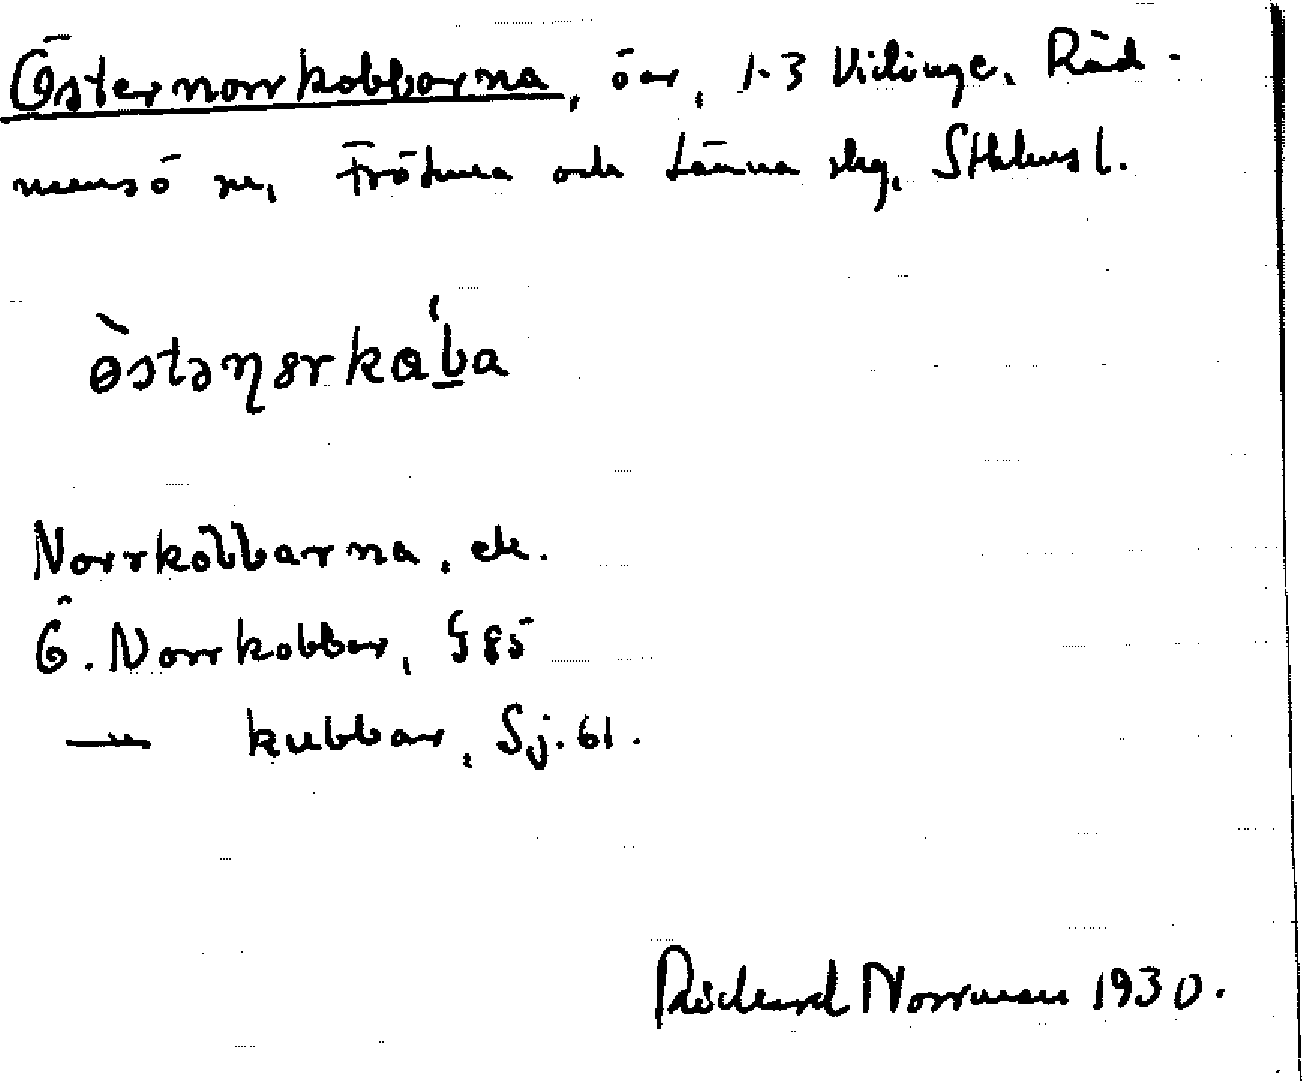 Östernorrkobbarna, öar, 1-3 Vidinge, Räd-
mansö sn, Frötuna och Länna skg, Sthlms l.
ɵ̀stəŋɞrkɑb̲a
Norrkobbarna, ek.
Ö. Norrkobbar, G 85
—"— kubbar, Sj. 61.
Rickard Norrman 1930.